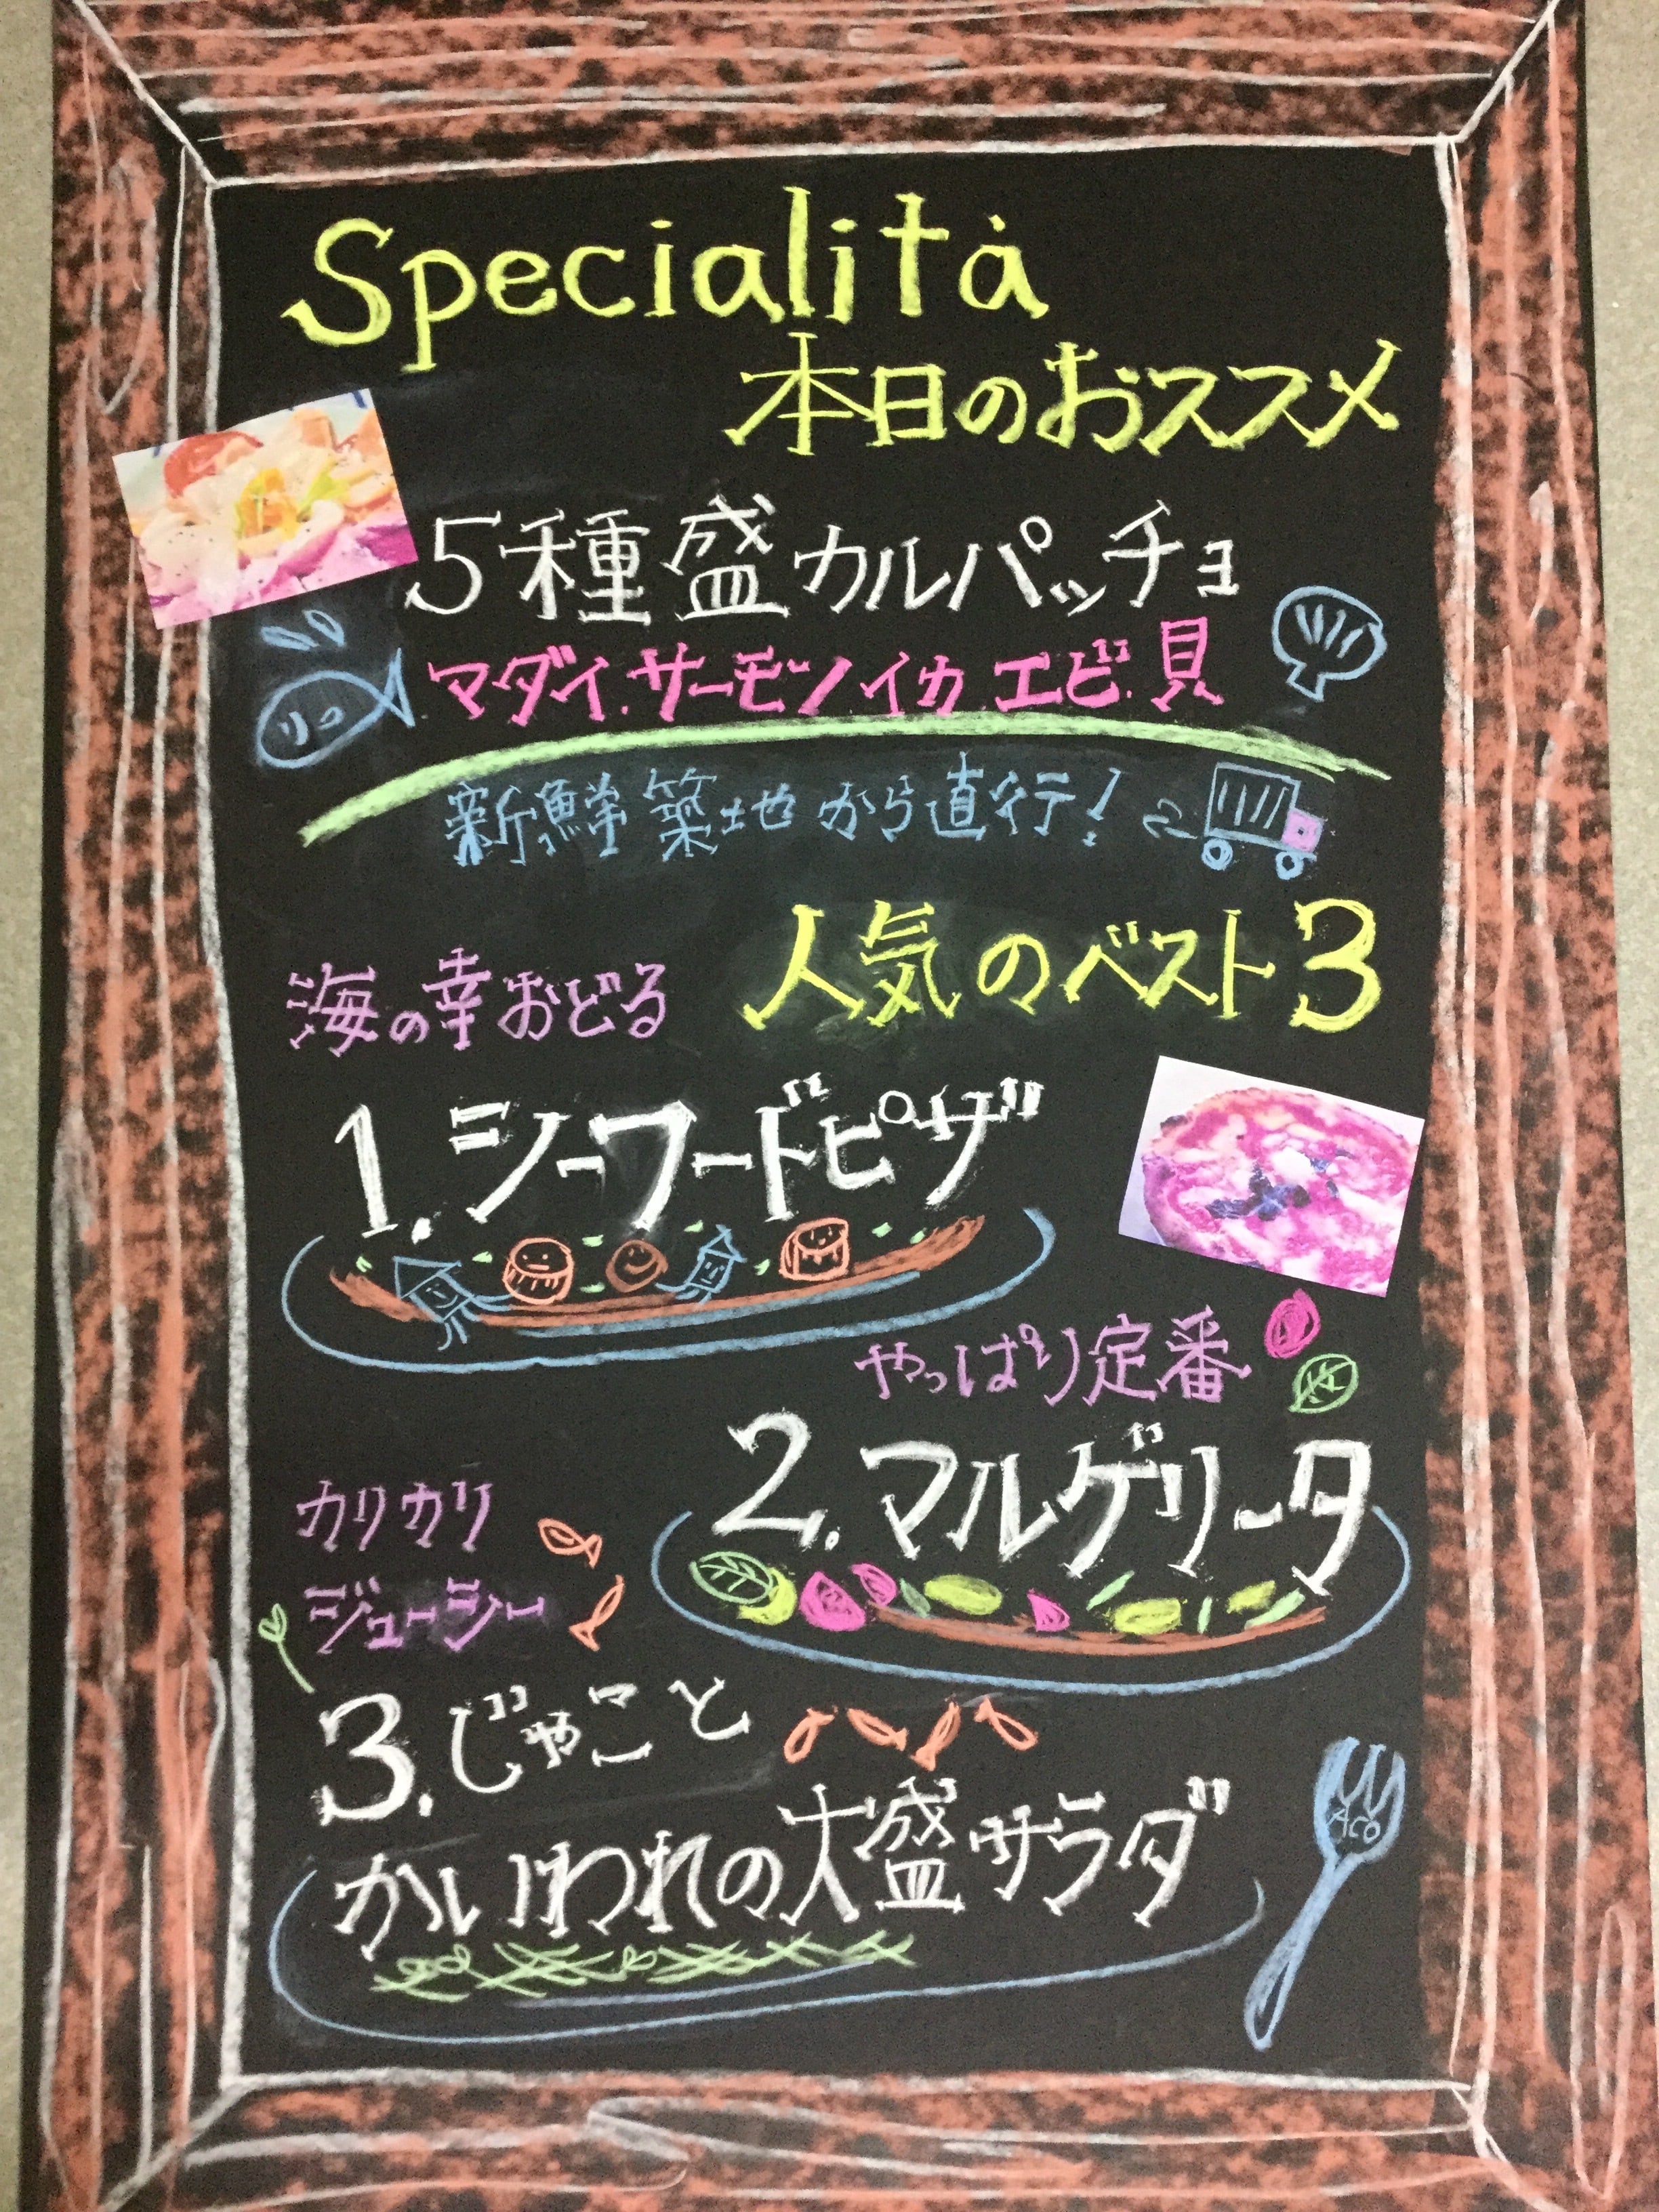 Specialità
本日のおススメ
5種盛カルパッチョ
マダイ.サーモン.イカ.エビ.貝
新鮮築地から直行!
人気のベスト3
海の幸おどる
1.シーフードピザ
やっぱり定番
2.マルゲリータ
カリカリ
ジューシー
3.じゃこと
かいわれの大盛サラダ
Aco